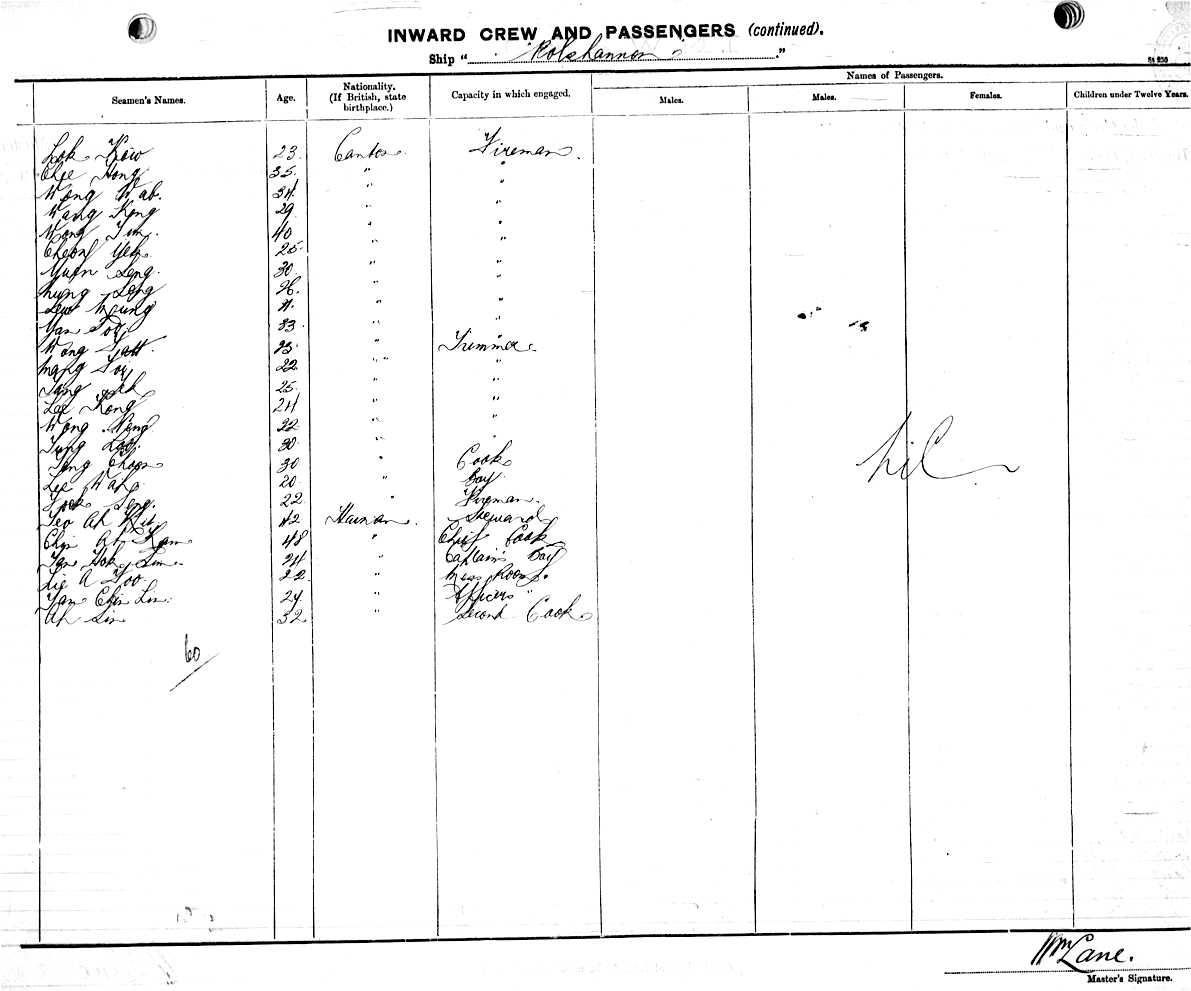 INWARD CREW AND PASSENGERS (continued).
Ship " Rolshannon ."
Sa 230
Seamen's Names. Age. Nationality. (If British, state birthplace.) Capacity in which engaged. Names of Passengers.
Males. Males. Females. Children under Twelve Years.
Lok Kew 23 Canton Fireman.
Chee Hong 35. " "
Wong Wab. 34 " "
Wang King 29 " "
Wong Tim. 40 " "
Cheong Yek 25. " "
Yuen Leng. 30. " "
Leng 26. " "
Lew Kung " "
Yan Toy 33 " "
Wong Yatt. 23 " Trimmer
Wang Foy 22 " "
Tang 25. " "
Lee Kong 24 " "
Wong Neng 22 " "
Tung Loy. 30 " "
Teng Choon 30 " Cook
Lee Wang 20 " Boy
Fook Seng. 22 " Fireman.
Teo Ah Kit 42 Hainan. Steward
Chin Ah Kam 48 " Chief Cook
Tan Hok Lim 24 " Captain's Boy
Lie A Too 22 " Mess Room "
Tan Chin Lin 24 " Officers "
Ah Lin 32 " Second Cook
nil
60
Wm Lane.
Master's Signature.